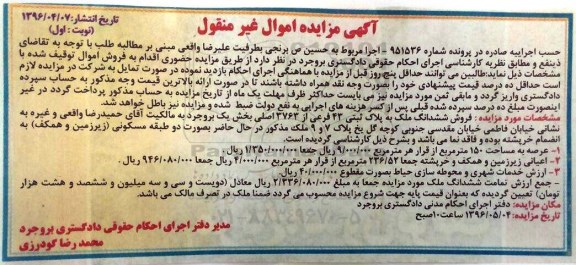 آگهی مزایده اموال غیر منقول
تاریخ انتشار: ۱۳۹۶/۰۴/۰۷
(نوبت: اول)
حسب اجراییه صادره در پرونده شماره ۹۵۱۵۳۶ - اجرا مربوط به حسین ص برنجی بطرفیت علیرضا واقعی مبنی بر مطالبه طلب با توجه به تقاضای
ذینفع و مطابق نظریه کارشناسی اجرای احکام حقوقی دادگستری بروجرد در نظر دارد از طریق مزایده حضوری اقدام به فروش اموال توقیف شده با
مشخصات ذیل نماید: طالبین می توانند حداقل پنج روز قبل از مزایده با هماهنگی اجرای احکام بازدید نموده در صورت تمایل به شرکت در مزایده لازم
است حداقل ده درصد قیمت پیشنهادی خود را بصورت وجه نقد همراه داشته باشند تا در صورت ارائه بالاترین قیمت وجه مذکور به حساب سپرده
دادگستری واریز گردد و مابقی ثمن مورد مزایده نیز می بایست حداکثر ظرف مهلت یک ماه از تاریخ مزایده به حساب مذکور پرداخت گردد در غیر
اینصورت مبلغ ده درصد سپرده شده قبلی پس از کسر هزینه های اجرایی به نفع دولت ضبط شده و مزایده نیز باطل خواهد شد.
مشخصات مورد مزایده: فروش ششدانگ ملک به پلاک ثبتی ۴۳ فرعی از ۳۷۶۲ اصلی بخش یک بروجرد به مالکیت آقای حمیدرضا واقعی و غیره به
نشانی خیابان فاطمی خیابان مقدسی جنوبی کوچه گل یخ پلاک ۷ و ۹ ملک مذکور در حال حاضر بصورت دو طبقه مسکونی (زیرزمین و همکف) به
انضمام خرپشته بوده و فاقد نما می باشد و بشرح ذیل کارشناسی گردیده است.
۱- عرصه به مساحت ۱۵۰ مترمربع از قرار هر مترمربع ۹/۰۰۰/۰۰۰ ریال جمعا ۱/۳۵۰/۰۰۰/۰۰۰ ریال.
۲- اعیانی زیرزمین و همکف و خرپشته جمعا ۲۳۶/۵۲ مترمربع از قرار هر مترمربع ۴/۰۰۰/۰۰۰ ریال جمعا ۹۴۶/۰۸۰/۰۰۰ ریال.
۳- ارزش خدمات شهری و محوطه سازی حیاط بصورت مقطوع ۴۰/۰۰۰/۰۰۰ ریال.
- جمع ارزش تمامت ششدانگ ملک مورد مزایده جمعا به مبلغ ۲/۳۳۶/۰۸۰/۰۰۰ ریال معادل (دویست و سی و سه میلیون و ششصد و هشت هزار
تومان) تعیین گردیده که بعنوان قیمت پایه جهت شروع مزایده محسوب می گردد ضمنا ملک در تصرف مالک می باشد.
مکان مزایده: دفتر اجرای احکام مدنی دادگستری بروجرد
تاریخ مزایده: ۱۳۹۶/۰۵/۰۴ ساعت ۱۰ صبح
مدیر دفتر اجرای احکام حقوقی دادگستری بروجرد
محمد رضا گودرزی